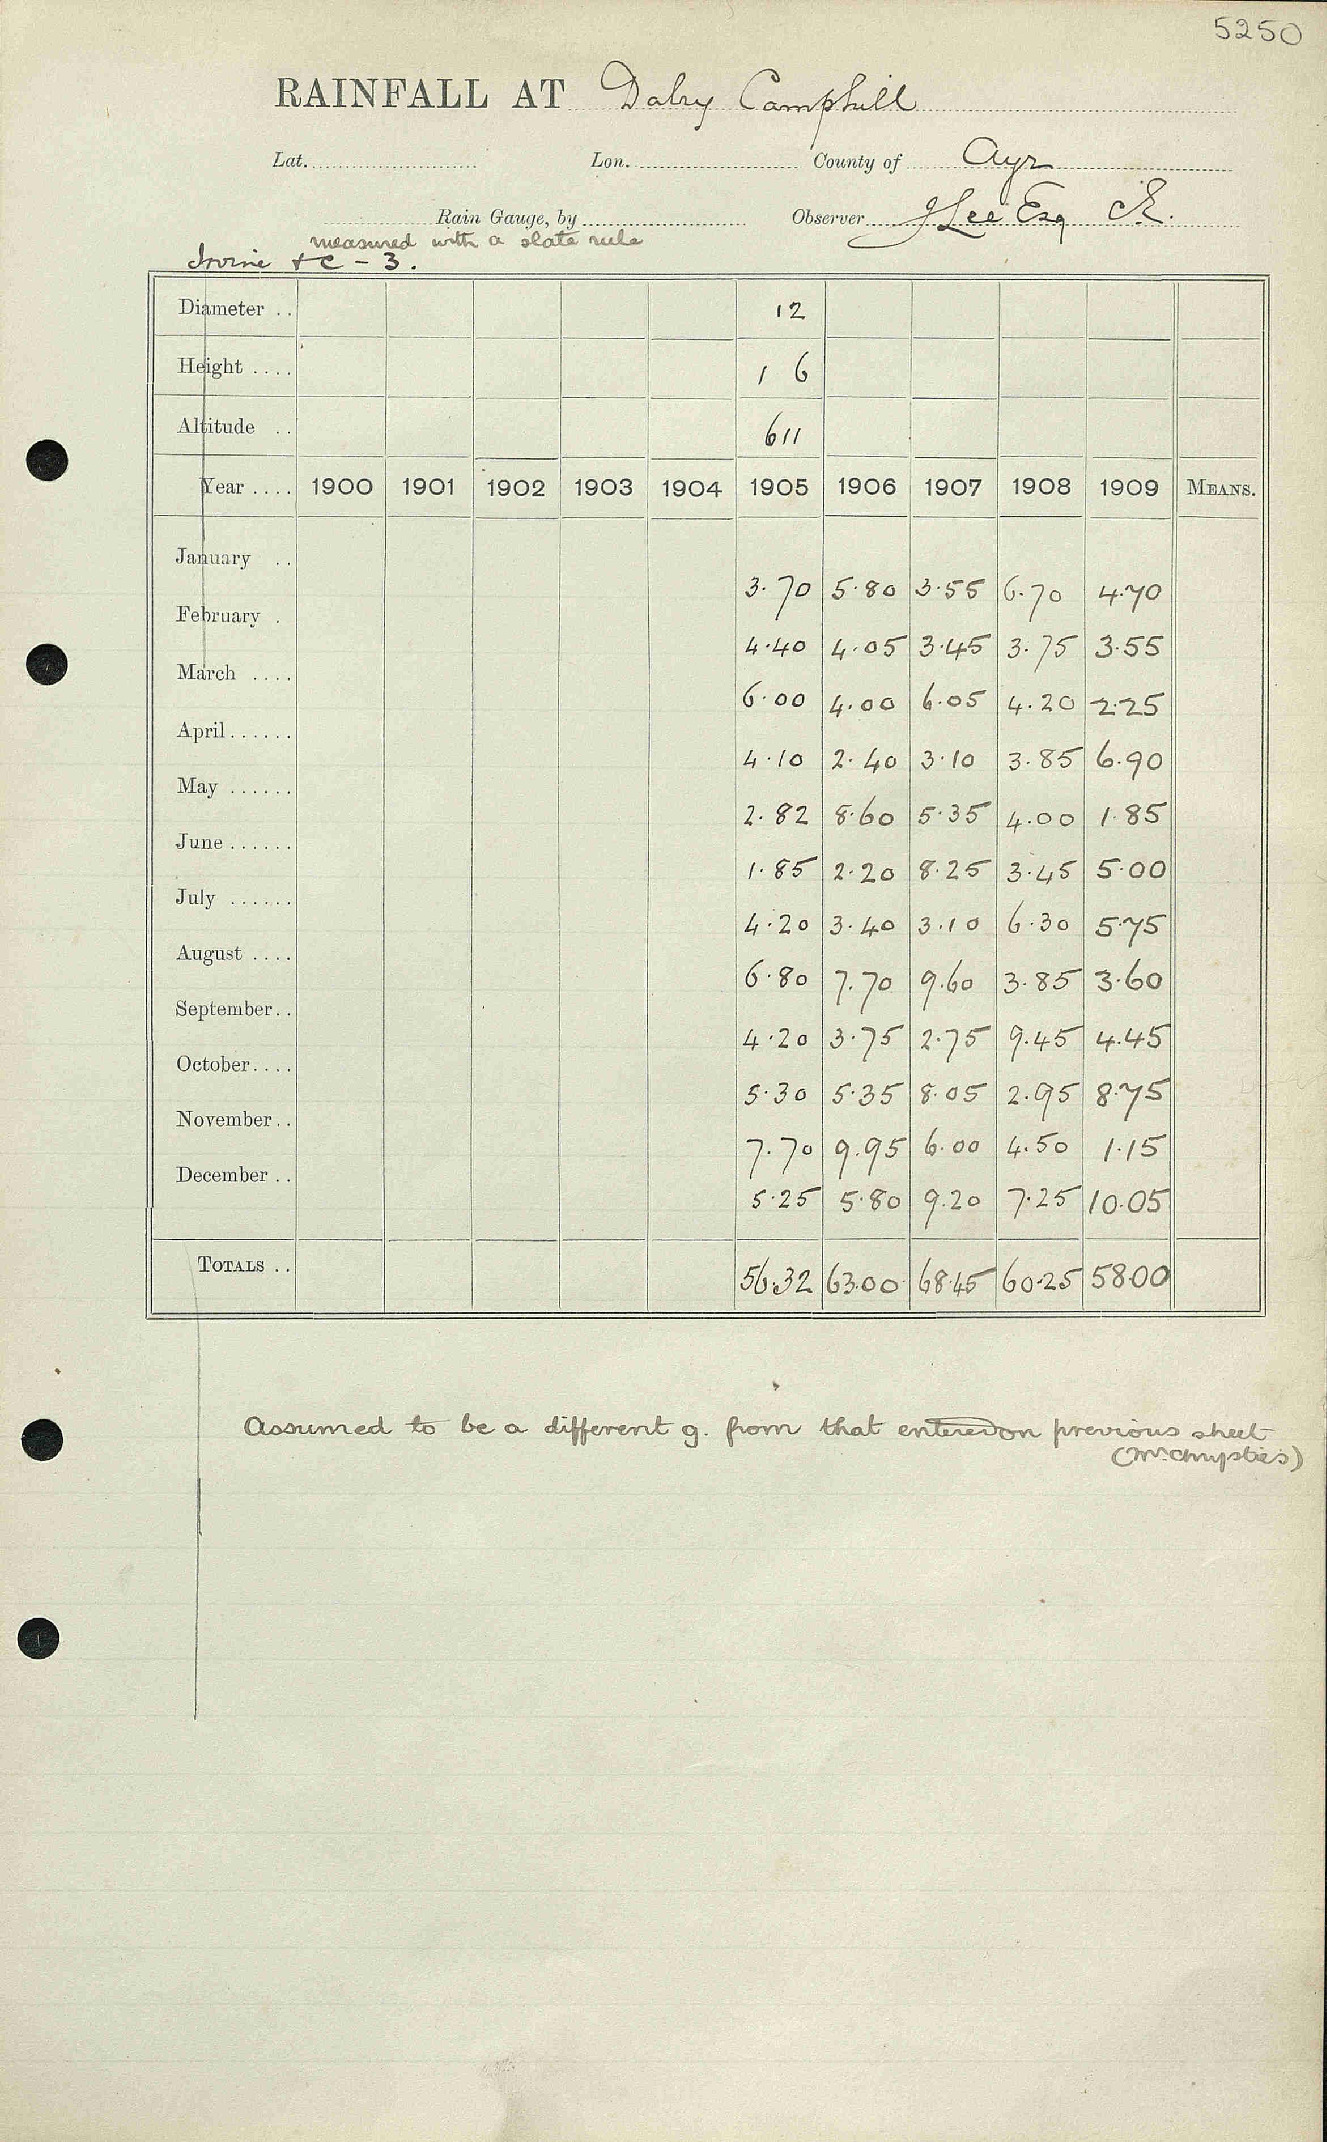 5250
RAINFALL AT Dalry Camphill
Lat. Lon. County of Ayr
Rain Gauge, by Observer J Lee Esq CE.
measured with a slate rule
Irvine & C - 3.
Diameter .. 12
Height .... 1 6
Altitude .. 611
Year .... 1900 1901 1902 1903 1904 1905 1906 1907 1908 1909 MEANS.
January .. 3.70 5.80 3.55 6.70 4.70
February . 4.40 4.05 3.45 3.75 3.55
March .... 6.00 4.00 6.05 4.20 2.25
April...... 4.10 2.40 3.10 3.85 6.90
May ...... 2.82 8.60 5.35 4.00 1.85
June ...... 1.85 2.20 8.25 3.45 5.00
July ...... 4.20 3.40 3.10 6.30 5.75
August .... 6.80 7.70 9.60 3.85 3.60
September.. 4.20 3.75 2.75 9.45 4.45
October.... 5.30 5.35 8.05 2.95 8.75
November.. 7.70 9.95 6.00 4.50 1.15
December .. 5.25 5.80 9.20 7.25 10.05
TOTALS .. 56.32 63.00 68.45 60.25 58.00
Assumed to be a different g. from that entered on previous sheet